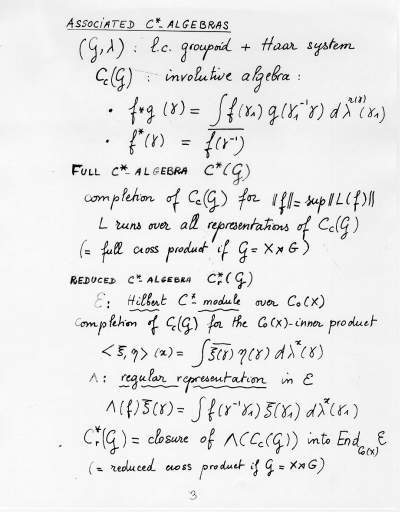 ASSOCIATED C*-ALGEBRAS
(G,λ) : l.c. groupoid + Haar system
Cc(G) : involutive algebra :
• f*g (γ) = ∫ f(γ₁) g(γ₁⁻¹γ) dλ^r(γ)(γ₁)
• f*(γ) = \overline{f(γ⁻¹)}
FULL C*-ALGEBRA C*(G)
completion of Cc(G) for ‖f‖ = sup‖L(f)‖
L runs over all representations of Cc(G)
(= full cross product if G = X⋊G)
REDUCED C*-ALGEBRA C*r(G)
ℰ : Hilbert C*-module over C₀(X)
completion of Cc(G) for the C₀(X)-inner product
<ξ, η>(x) = ∫ \overline{ξ(γ)} η(γ) dλ^x(γ)
Λ : regular representation in ℰ
Λ(f)ξ(γ) = ∫ f(γ⁻¹γ₁) ξ(γ₁) dλ^x(γ₁)
C*r(G) = closure of Λ(Cc(G)) into End_C₀(X) ℰ
(= reduced cross product if G = X⋊G)
3